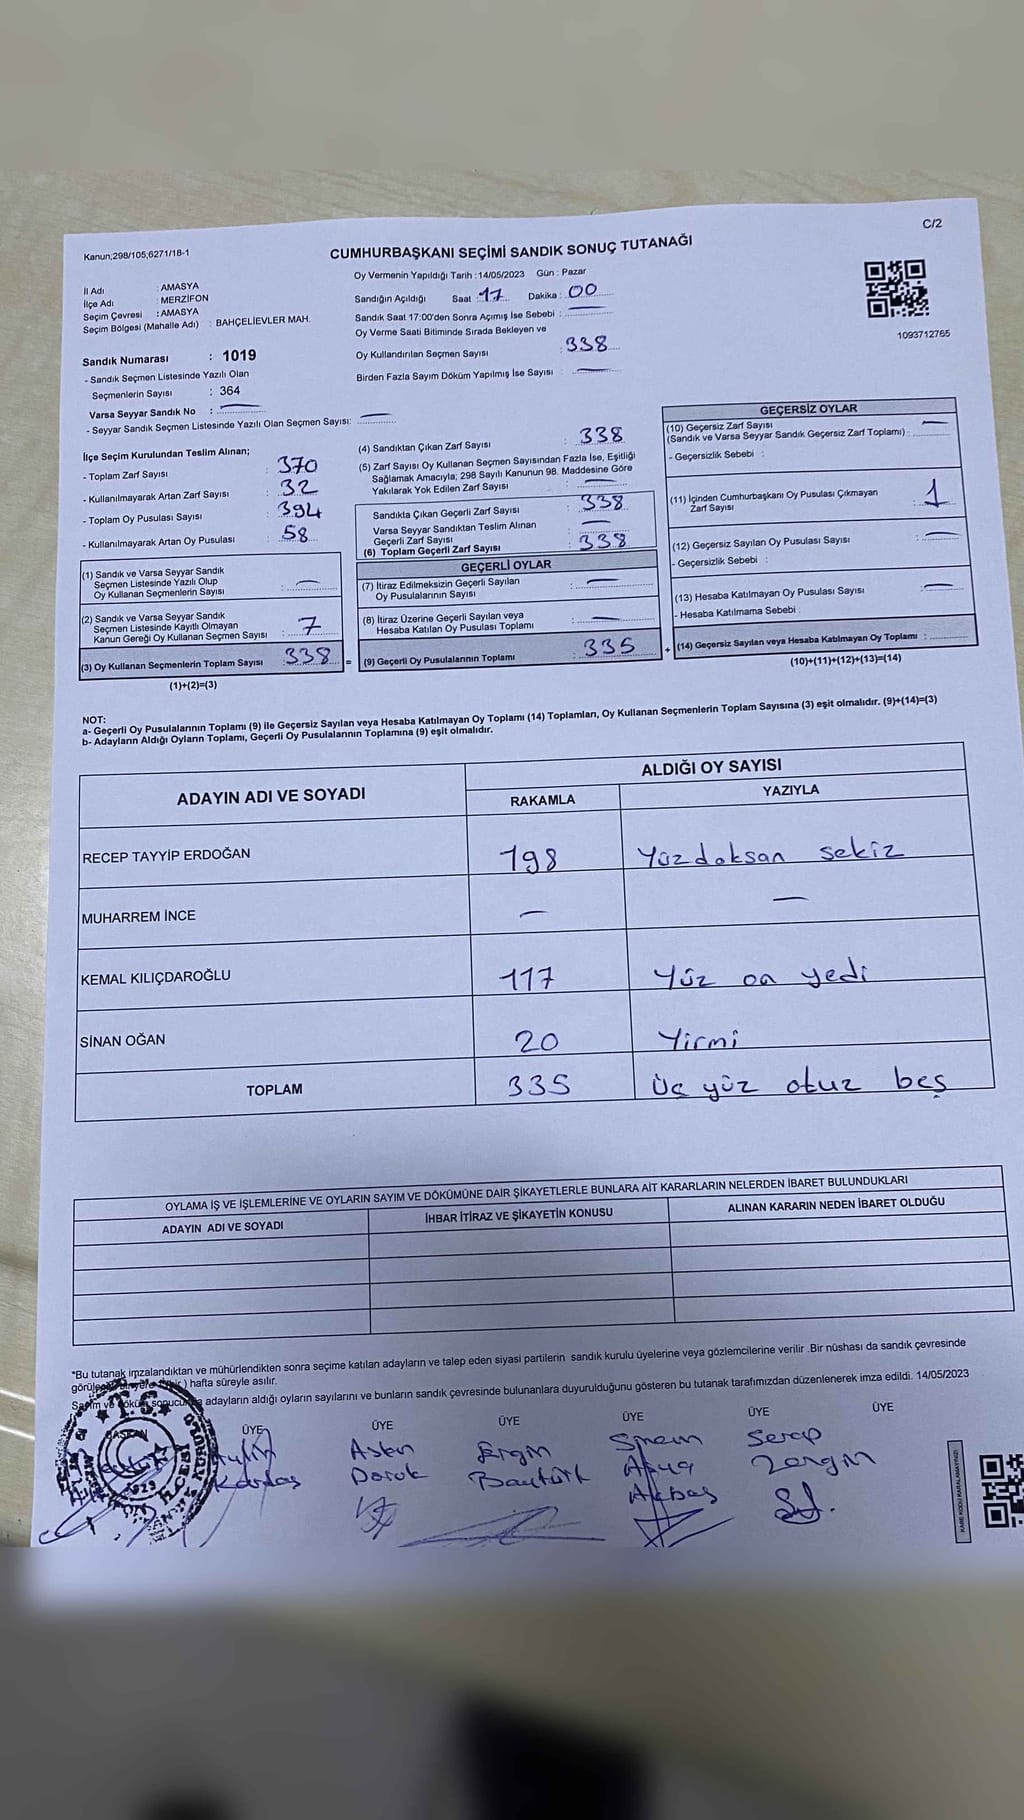 C/2
Kanun;298/105;6271/18-1
CUMHURBAŞKANI SEÇİMİ SANDIK SONUÇ TUTANAĞI
İl Adı : AMASYA
İlçe Adı : MERZİFON
Seçim Çevresi : AMASYA
Seçim Bölgesi (Mahalle Adı) : BAHÇELİEVLER MAH.
Sandık Numarası : 1019
- Sandık Seçmen Listesinde Yazılı Olan
Seçmenlerin Sayısı : 364
Varsa Seyyar Sandık No : —
- Seyyar Sandık Seçmen Listesinde Yazılı Olan Seçmen Sayısı: —
Oy Vermenin Yapıldığı Tarih :14/05/2023 Gün : Pazar
Sandığın Açıldığı Saat 17 Dakika : 00
Sandık Saat 17:00'den Sonra Açımış İse Sebebi : —
Oy Verme Saati Bitiminde Sırada Bekleyen ve
Oy Kullandırılan Seçmen Sayısı : 338
Birden Fazla Sayım Döküm Yapılmış İse Sayısı : —
1093712765
İlçe Seçim Kurulundan Teslim Alınan;
- Toplam Zarf Sayısı : 370
- Kullanılmayarak Artan Zarf Sayısı : 32
- Toplam Oy Pusulası Sayısı : 394
- Kullanılmayarak Artan Oy Pusulası : 58
(1) Sandık ve Varsa Seyyar Sandık
Seçmen Listesinde Yazılı Olup
Oy Kullanan Seçmenlerin Sayısı : —
(2) Sandık ve Varsa Seyyar Sandık
Seçmen Listesinde Kayıtlı Olmayan
Kanun Gereği Oy Kullanan Seçmen Sayısı : 7
(3) Oy Kullanan Seçmenlerin Toplam Sayısı : 338 =
(1)+(2)=(3)
(4) Sandıktan Çıkan Zarf Sayısı : 338
(5) Zarf Sayısı Oy Kullanan Seçmen Sayısından Fazla İse, Eşitliği
Sağlamak Amacıyla; 298 Sayılı Kanunun 98. Maddesine Göre
Yakılarak Yok Edilen Zarf Sayısı : —
Sandıkta Çıkan Geçerli Zarf Sayısı : 338
Varsa Seyyar Sandıktan Teslim Alınan
Geçerli Zarf Sayısı : —
(6) Toplam Geçerli Zarf Sayısı : 338
GEÇERLİ OYLAR
(7) İtiraz Edilmeksizin Geçerli Sayılan
Oy Pusulalarının Sayısı : —
(8) İtiraz Üzerine Geçerli Sayılan veya
Hesaba Katılan Oy Pusulası Toplamı : —
(9) Geçerli Oy Pusulalarının Toplamı : 335 +
GEÇERSİZ OYLAR
(10) Geçersiz Zarf Sayısı —
(Sandık ve Varsa Seyyar Sandık Geçersiz Zarf Toplamı) :
- Geçersizlik Sebebi :
(11) İçinden Cumhurbaşkanı Oy Pusulası Çıkmayan
Zarf Sayısı : 1
(12) Geçersiz Sayılan Oy Pusulası Sayısı : —
- Geçersizlik Sebebi :
(13) Hesaba Katılmayan Oy Pusulası Sayısı : —
- Hesaba Katılmama Sebebi :
(14) Geçersiz Sayılan veya Hesaba Katılmayan Oy Toplamı :
(10)+(11)+(12)+(13)=(14)
NOT:
a- Geçerli Oy Pusulalarının Toplamı (9) ile Geçersiz Sayılan veya Hesaba Katılmayan Oy Toplamı (14) Toplamları, Oy Kullanan Seçmenlerin Toplam Sayısına (3) eşit olmalıdır. (9)+(14)=(3)
b- Adayların Aldığı Oyların Toplamı, Geçerli Oy Pusulalarının Toplamına (9) eşit olmalıdır.
ADAYIN ADI VE SOYADI
ALDIĞI OY SAYISI
RAKAMLA YAZIYLA
RECEP TAYYİP ERDOĞAN 198 Yüzdoksan sekiz
MUHARREM İNCE — —
KEMAL KILIÇDAROĞLU 117 Yüz on yedi
SİNAN OĞAN 20 Yirmi
TOPLAM 335 üç yüz otuz beş
OYLAMA İŞ VE İŞLEMLERİNE VE OYLARIN SAYIM VE DÖKÜMÜNE DAİR ŞİKAYETLERLE BUNLARA AİT KARARLARIN NELERDEN İBARET BULUNDUKLARI
ADAYIN ADI VE SOYADI İHBAR İTİRAZ VE ŞİKAYETİN KONUSU ALINAN KARARIN NEDEN İBARET OLDUĞU
*Bu tutanak imzalandıktan ve mühürlendikten sonra seçime katılan adayların ve talep eden siyasi partilerin sandık kurulu üyelerine veya gözlemcilerine verilir .Bir nüshası da sandık çevresinde
hafta süreyle asılır.
adayların aldığı oyların sayılarını ve bunların sandık çevresinde bulunanlara duyurulduğunu gösteren bu tutanak tarafımızdan düzenlenerek imza edildi. 14/05/2023
BAŞKAN ÜYE ÜYE ÜYE ÜYE ÜYE ÜYE
Aylin Karataş
Aslan Doruk
Ergin Baytürk
Sinem Akbaş
Serap Zengin
T.S.